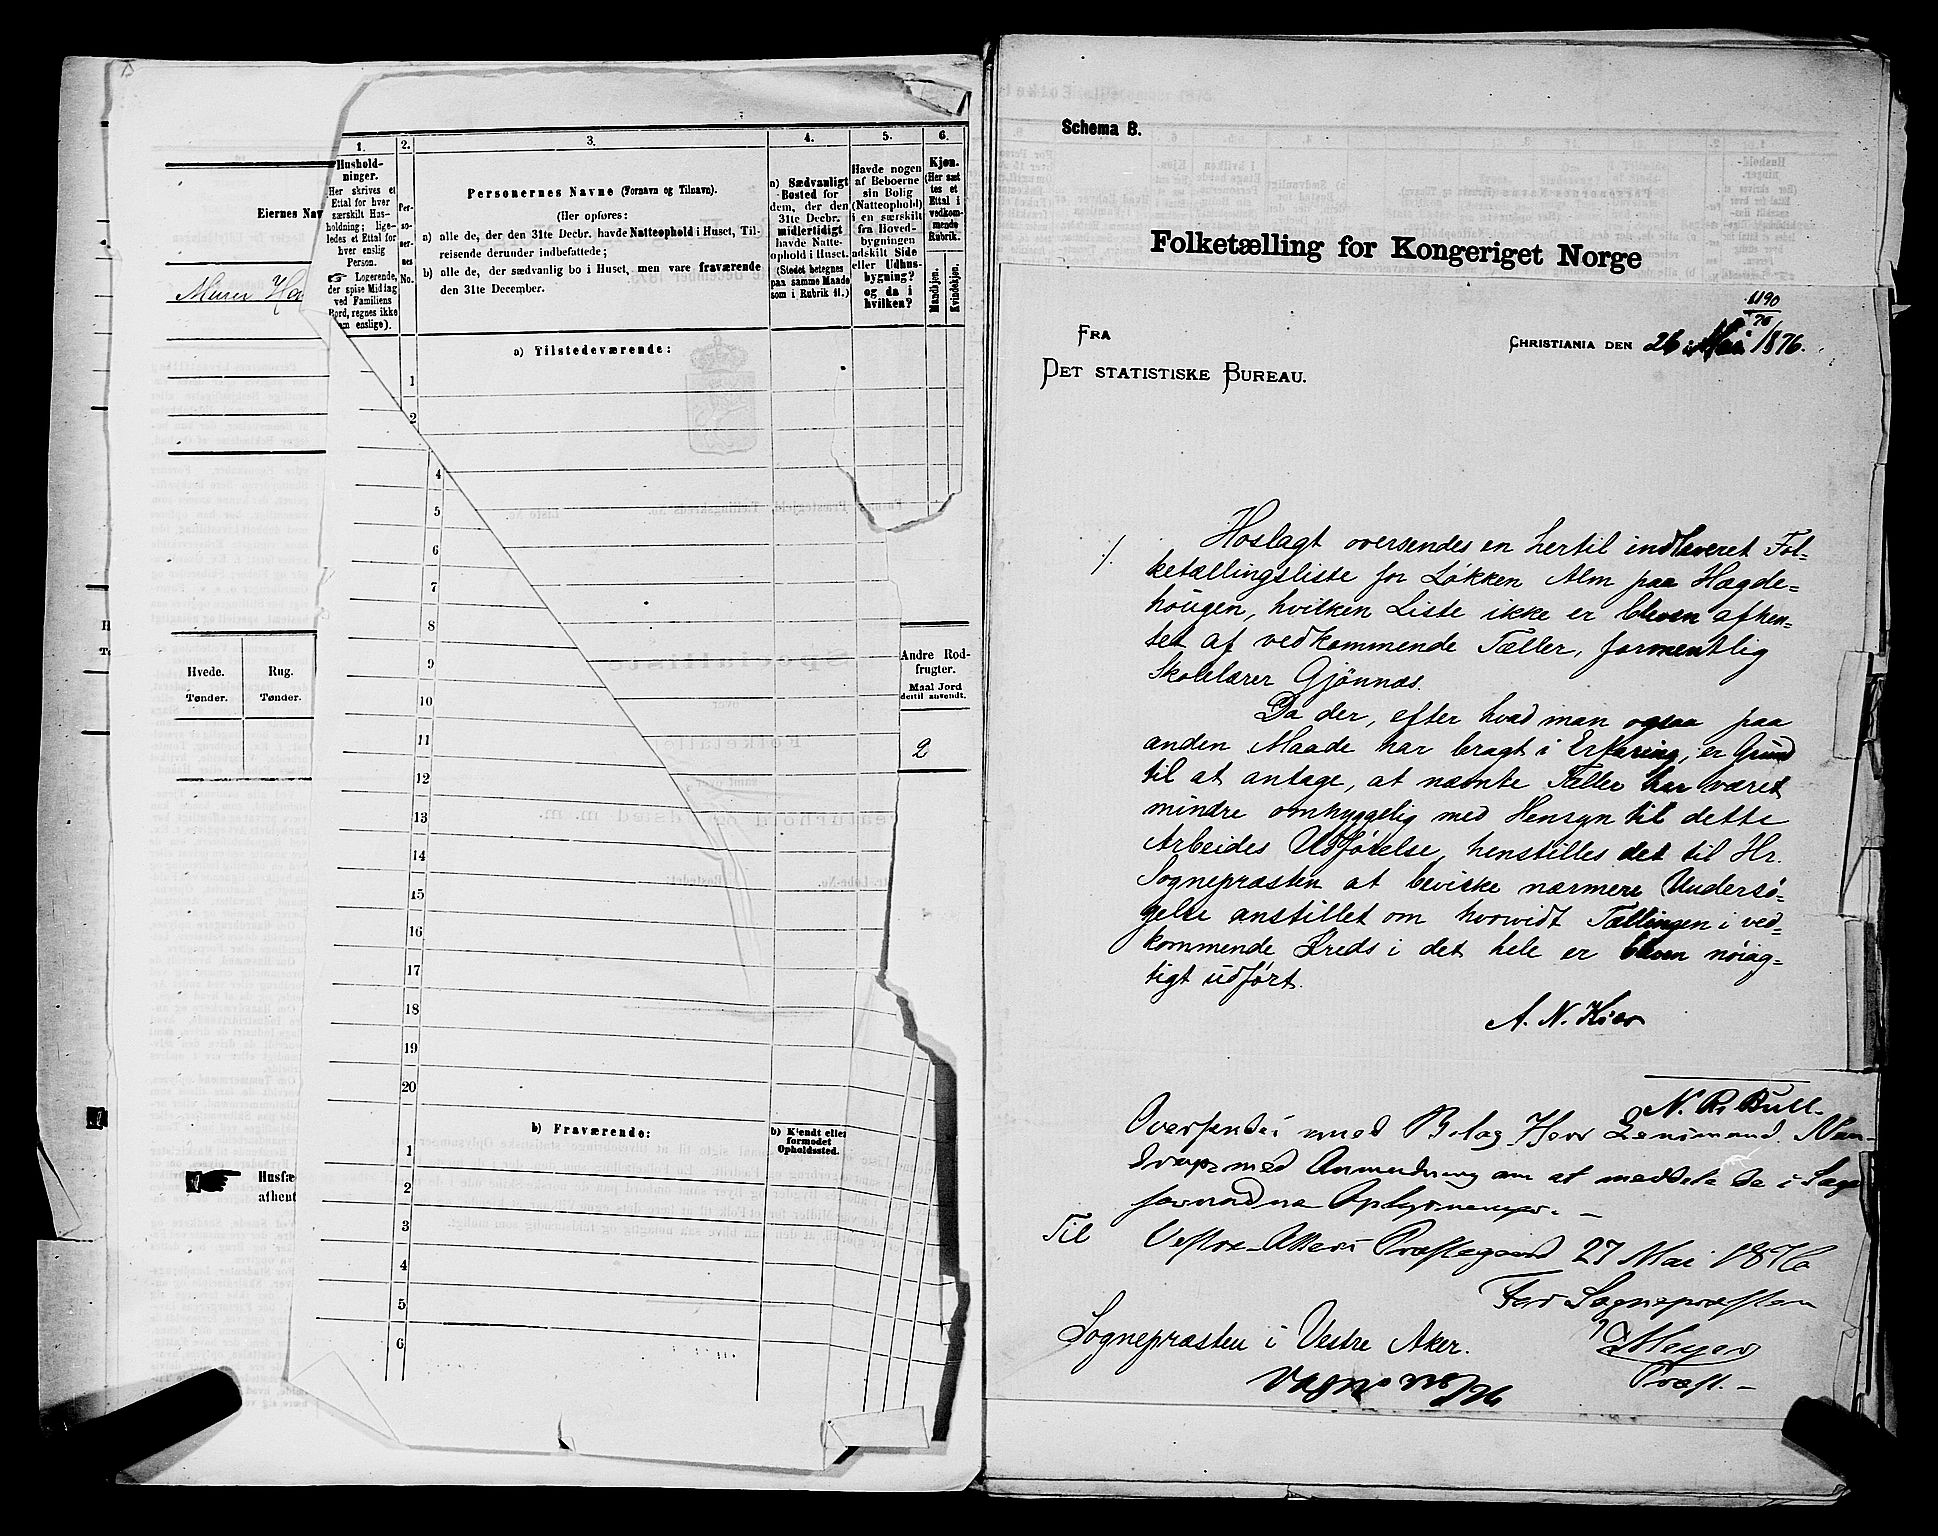 Eiernes Nav
Murer Ha
Hvede.
Tønder.
Rug.
Tønder.
Husfæ
afhent
1.
Hushold-
ninger.
Her skrives et
Ettal for hver
særskilt Hus-
holdning; lige-
ledes et Ettal for
hver enslig
Person.
☞ Logerende,
der spise Middag
ved Familiens
Bord, regnes ikke
som enslige).
2.
Per-
so-
ner-
nes
No.
3.
Personernes Navne (Fornavn og Tilnavn).
(Her opføres:
a) alle de, der den 31te Decbr. havde Natteophold i Huset, Til-
reisende derunder indbefattede;
b) alle de, der sædvanlig bo i Huset, men vare fraværende
den 31te December.
4.
a) Sædvanligt
Bosted for
dem, der den
31te Decbr.
midlertidigt
havde Natte-
ophold i Huset.
(Stedet betegnes
paa samme Maade
som i Rubrik 11.)
5.
Havde nogen
af Beboerne
sin Bolig
(Natteophold)
i en særskilt
fra Hoved-
bygningen
adskilt Side
eller Udhus-
bygning?
og da i
hvilken?
6.
Kjøn.
(Her sæt
tes et
Ettal i
vedkom-
mende
Rubrik.
Mandkjøn.
Kvindekjøn.
a) Tilstedeværende:
1
2
4
5
6
7
8
9
10
11
12
13
14
15
16
17
18
19
20
b) Fraværende:
b) Kjendt eller
formodet
Opholdssted.
1
2
3
4
5
6
Andre Rod-
frugter.
Maal Jord
dertil anvendt.
2
Schema B.
Folketælling for Kongeriget Norge
1190
/76
FRA
DET STATISTISKE BUREAU.
CHRISTIANIA DEN 26 Mai 1876.
Hoslagt oversendes en hertil indleveret Fol-
ketællingsliste for Løkken Alm paa Hægde-
hougen, hvilken Liste ikke er bleven afhen-
tet af vedkommende Tæller, formentlig
Skolelærer Gjønnæs.
Da der, efter hvad man ogsaa paa
anden Maade har bragt i Erfaring, er Grund
til at antage, at nævnte Tæller har været
mindre omhyggelig med Hensyn til dette
Arbeides Udførelse, henstilles det til Hr.
Sognepræsten at bevirke nærmere Undersø-
gelse anstillet om hvorvidt Tællingen i ved-
kommende Kreds i det hele er bleven nøiag-
tigt udført.
A. N. Kiær
N. R. Bull
Oversendes med Bilag Herr Lensmand
med Anmodning om at meddele de i Sagen
fornødne Oplysninger. –
Vestre Akers Præstegaard 27 Mai 1876
For Sognepræsten
Meyer
Præst. –
Til
Sognepræsten i Vestre Aker.